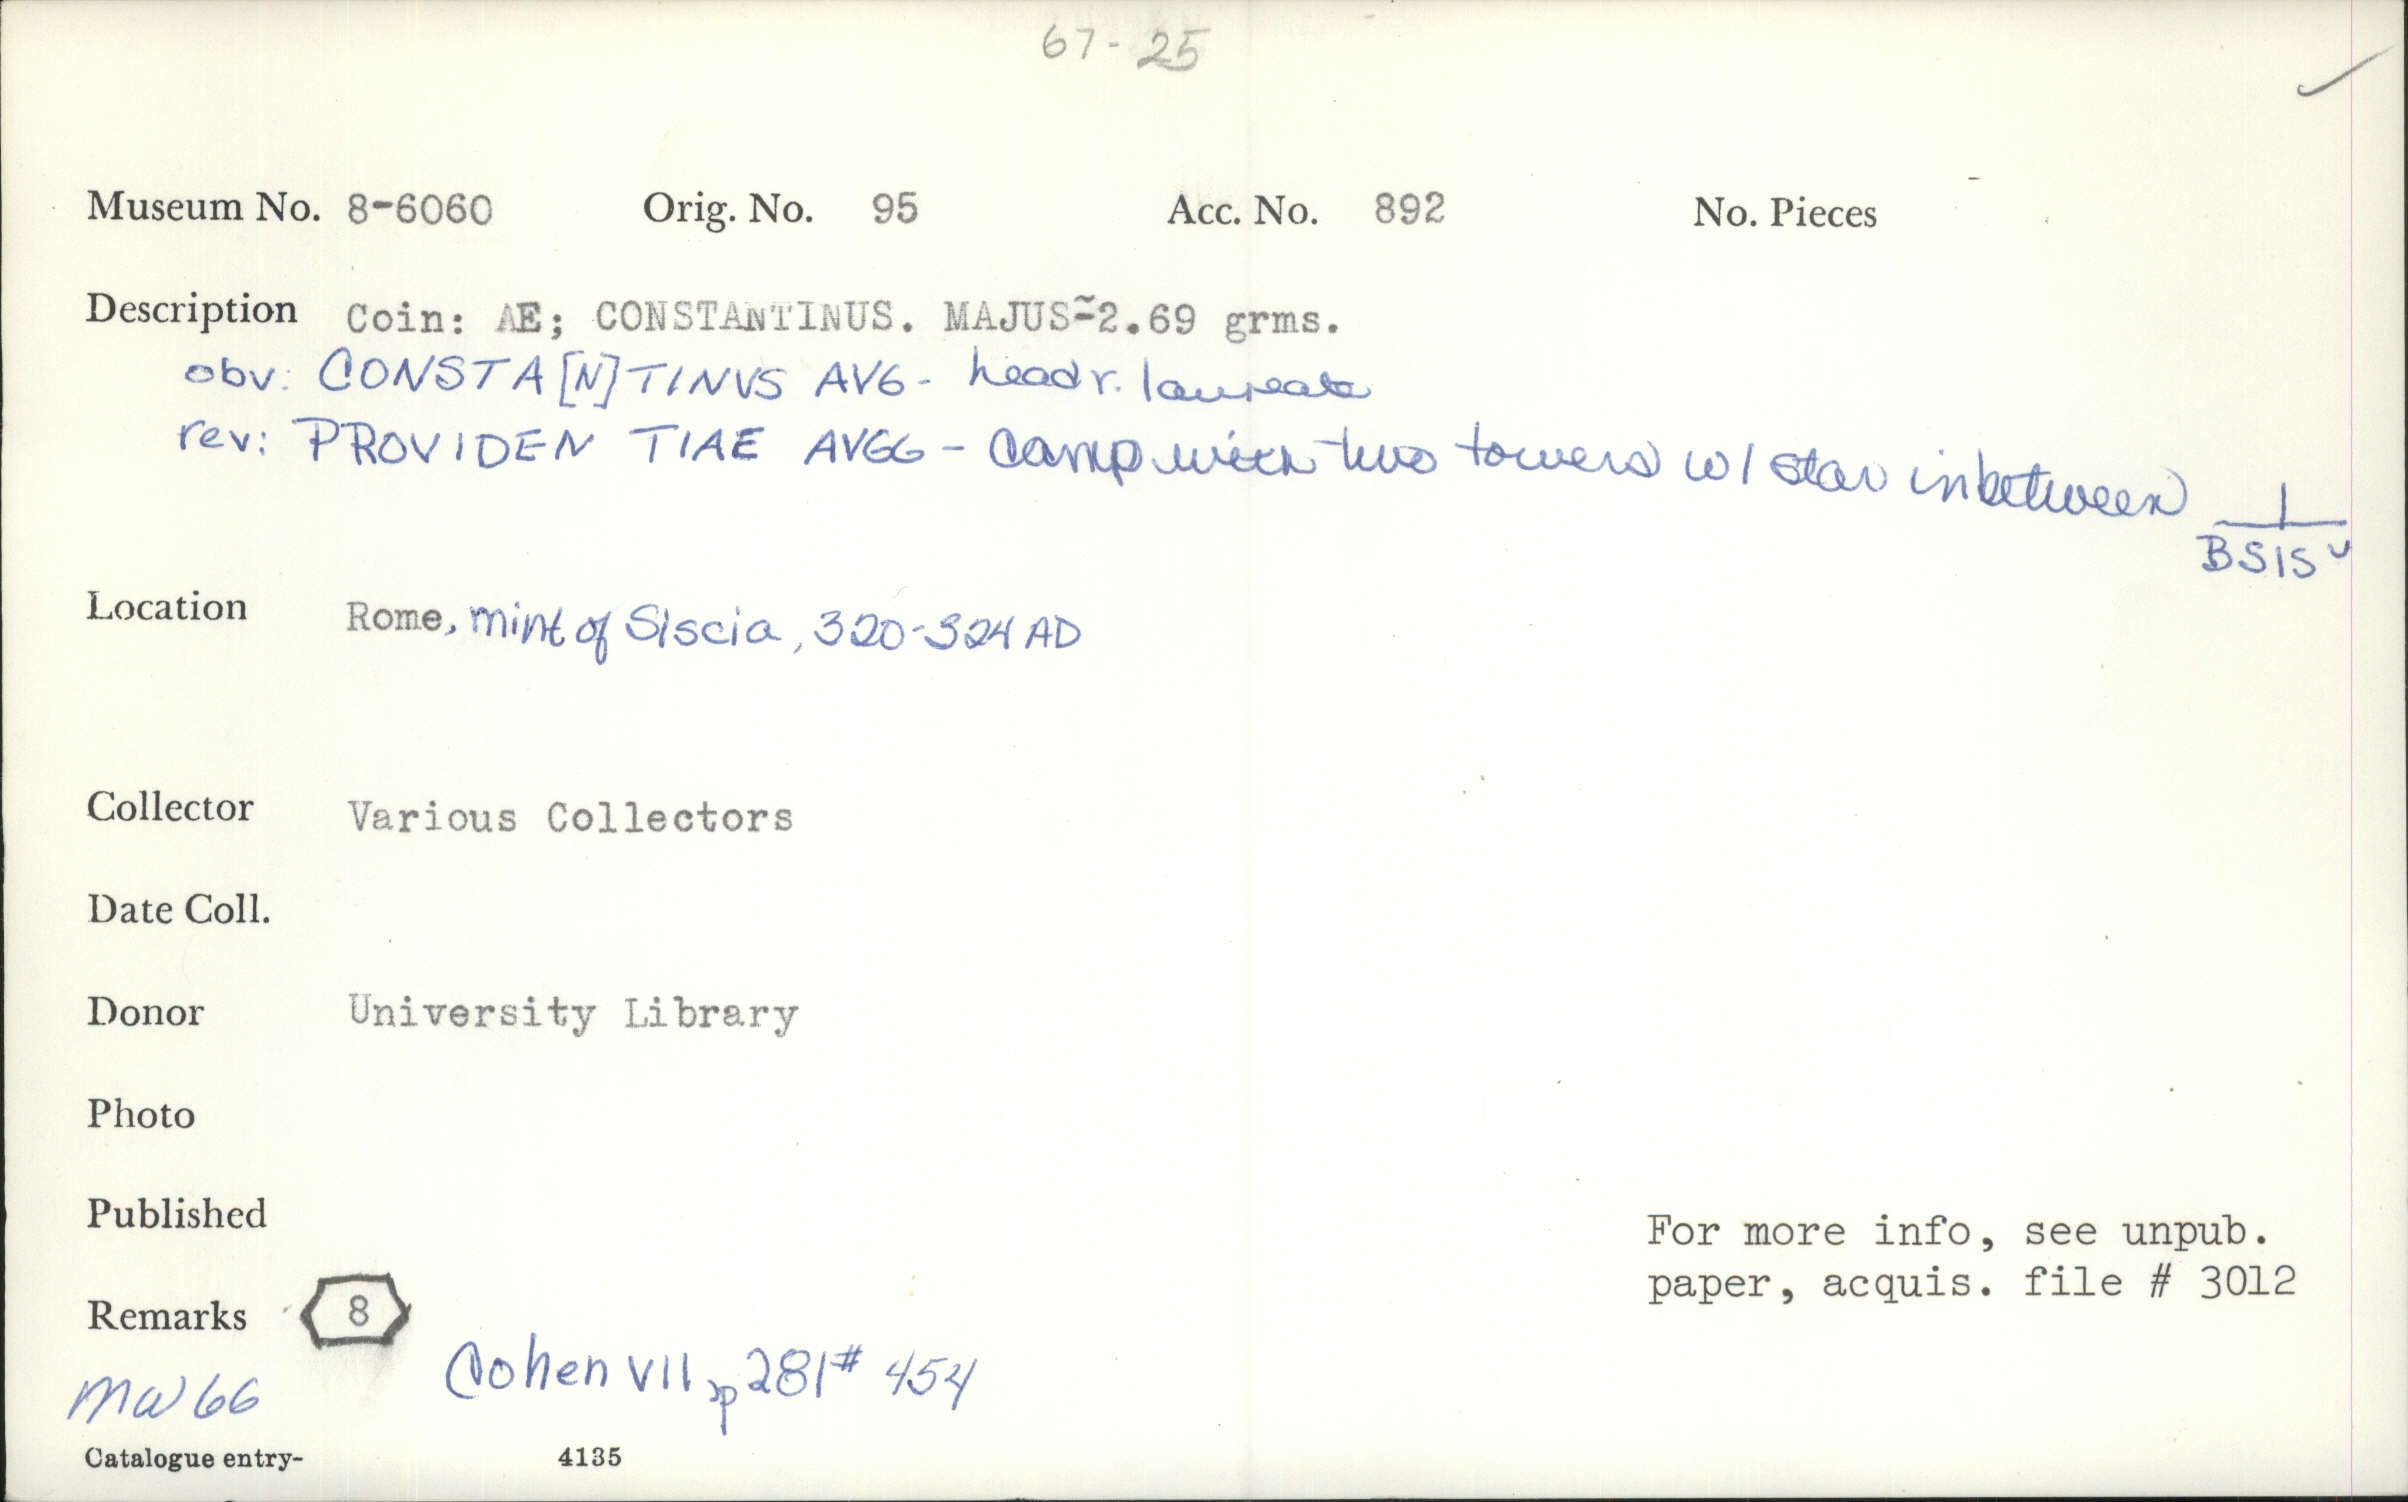 67-25
Museum No. 8-6060 Orig. No. 95 Acc. No. 892 No. Pieces
Description Coin: AE; CONSTANTINUS. MAJUS~2.69 grms.
obv: CONSTA[N]TINVS AVG- head r. laureate
rev: PROVIDEN TIAE AVGG - Camp with two towers w/ star inbetween
BSIS
Location Rome, mint of Siscia, 320-324 AD
Collector Various Collectors
Date Coll.
Donor University Library
Photo
Published
For more info, see unpub.
paper, acquis. file # 3012
Remarks 8
MW 66 Cohen VII, p 281 # 454
Catalogue entry- 4135